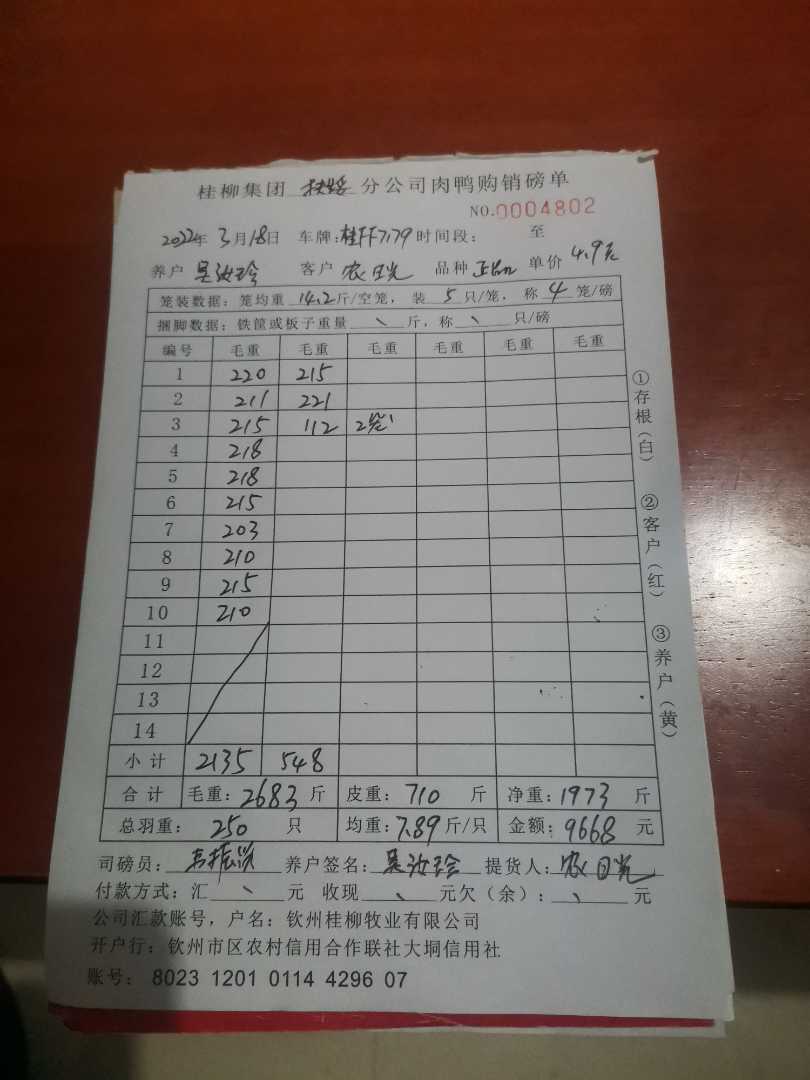 桂柳集团 扶绥 分公司肉鸭购销磅单
NO.0004802
2022年 3月18日 车牌:桂FF7179 时间段: 至
养户 吴汝玲 客户 农日光 品种 正品 单价 4.9元
笼装数据:笼均重 14.2 斤/空笼, 装 5 只/笼, 称 4 笼/磅
捆脚数据:铁筐或板子重量 、 斤, 称 、 只/磅
编号 毛重 毛重 毛重 毛重 毛重 毛重
1 220 215
2 211 221
3 215 112 2笼
4 218
5 218
6 215
7 203
8 210
9 215
10 210
11
12
13
14
小计 2135 548
合计 毛重:2683 斤 皮重:710 斤 净重:1973 斤
总羽重: 250 只 均重:7.89 斤/只 金额:9668 元
司磅员: 养户签名:吴汝玲 提货人:农日光
付款方式:汇 、 元 收现 、 元欠(余):、 元
公司汇款账号,户名:钦州桂柳牧业有限公司
开户行:钦州市区农村信用合作联社大垌信用社
账号: 8023 1201 0114 4296 07
①存根(白)
②客户(红)
③养户(黄)